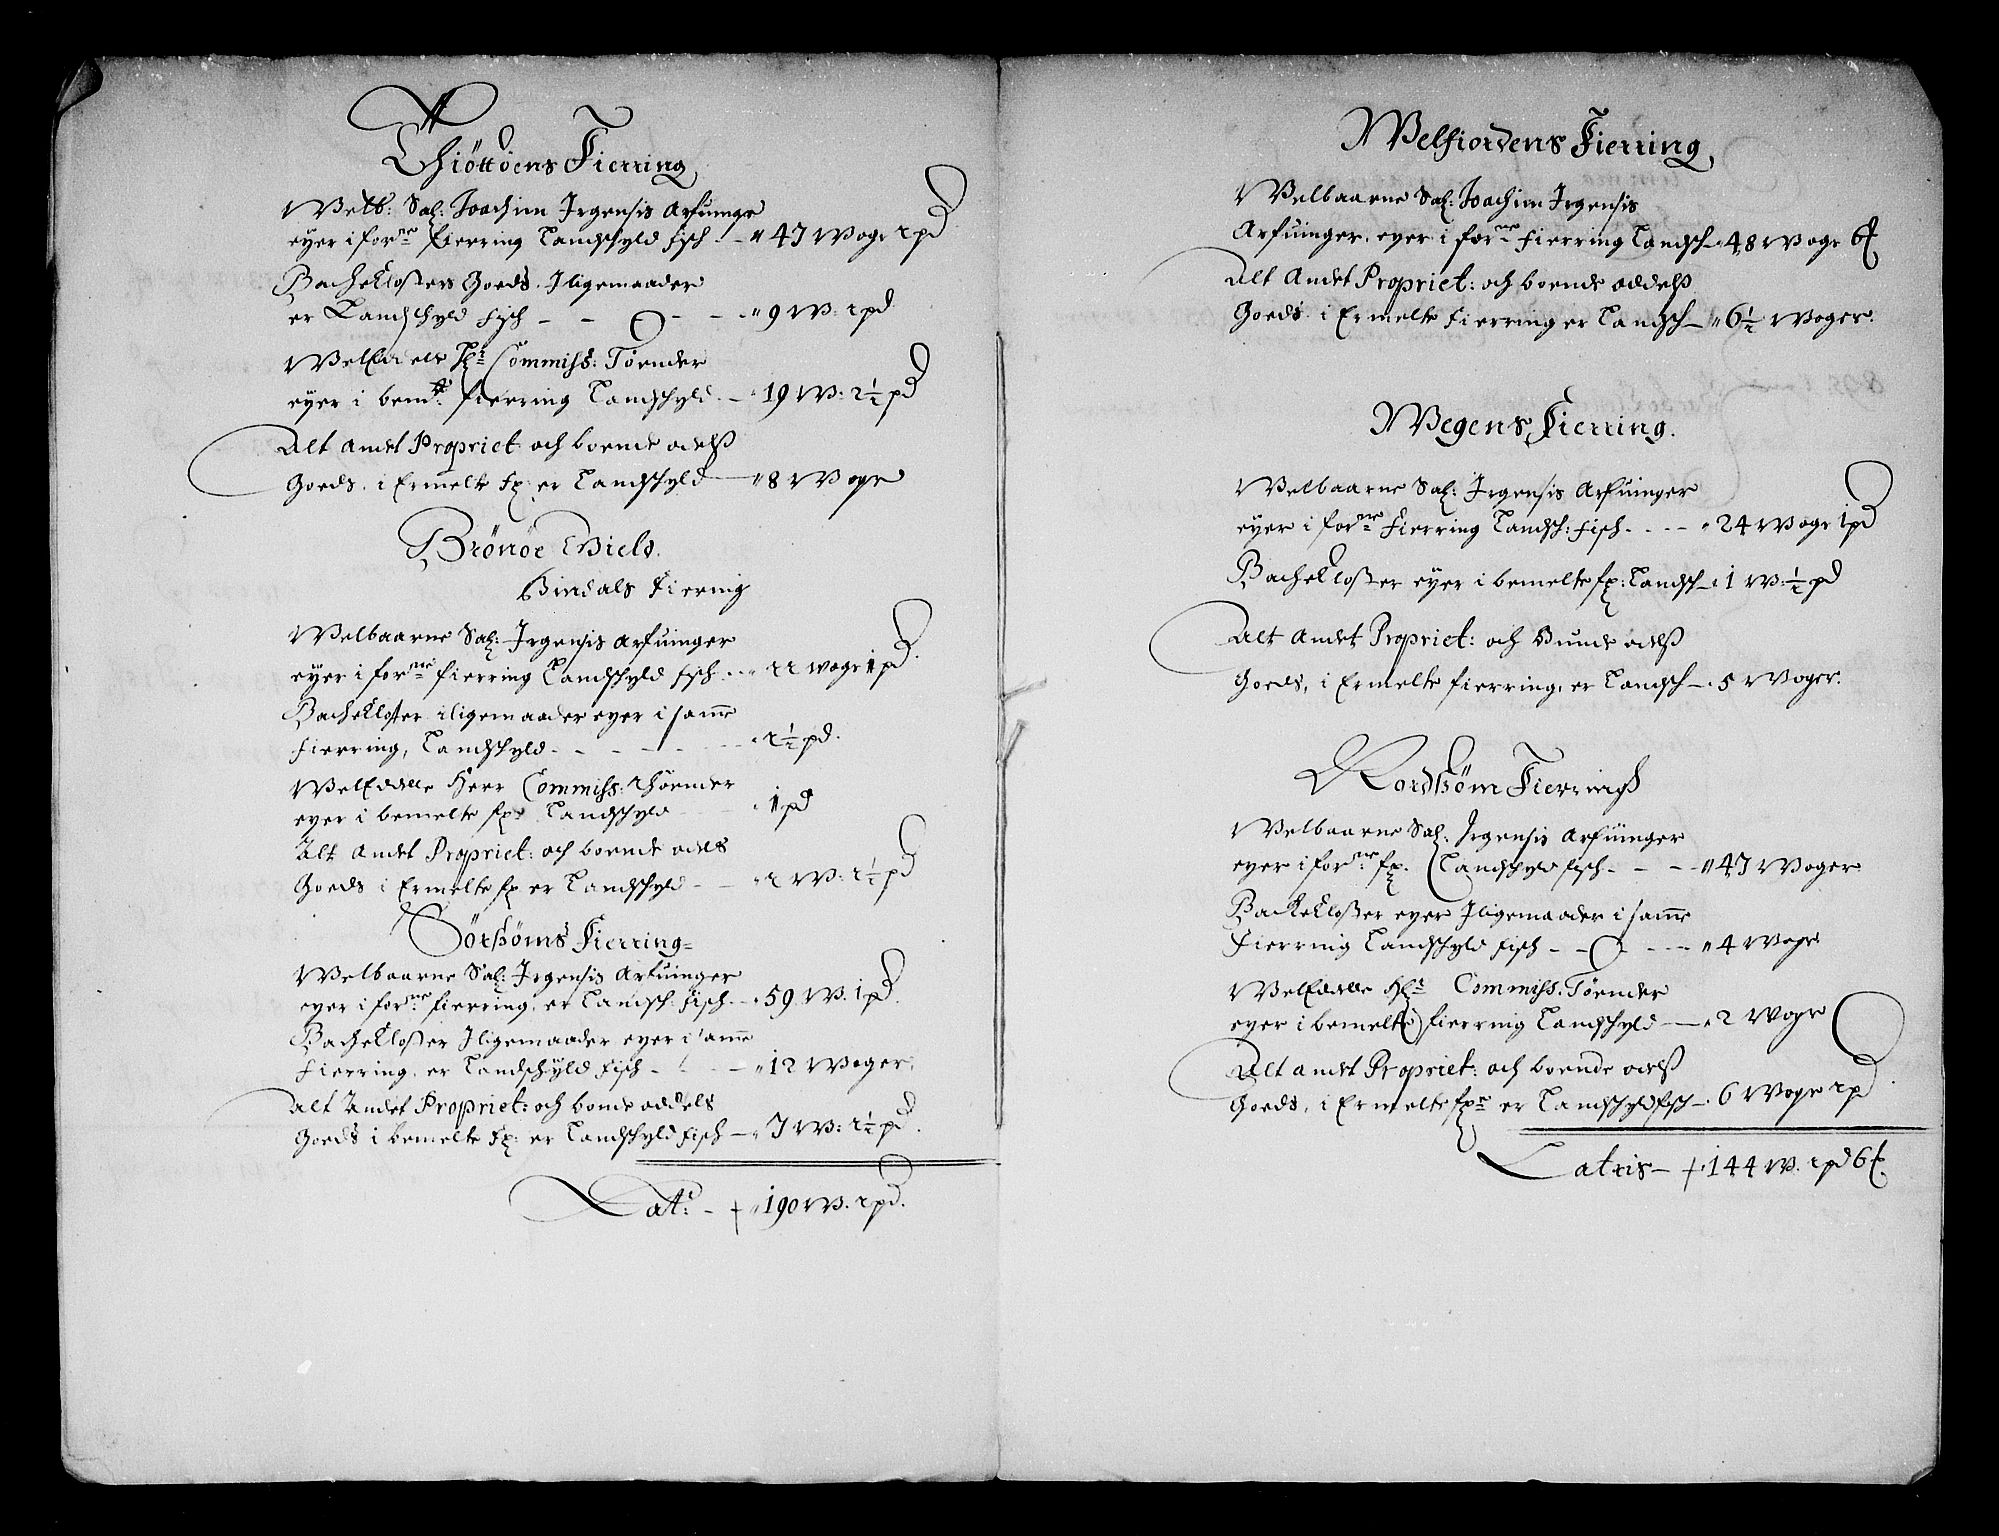 Thiöttöens Fierring
Welb: Sal: Joachim Irgensis Arfuinge
eyer i forne fierring Landschyld fisch - " 47 Woge 2 pd
Bacheklosters Goeds Iligemaader
er Landschyld fisch - - - - " 9 W: 2 pd
WelEdele Hr: Commiss: Tönder
eyer i bemte: fierring Landschyld - " 19 W: 2½ pd
Alt Andet Propriet och boende odelß
Goeds i Ermelte fr: er Landschyld - " 8 Woge
Brönöe Thield.
Bindals Fierring
Welbaarne Sal: Irgensis Arfuinger
eyer i forne fierring Landschyld fisch - " 22 woge 1 pd.
Bachekloster iligemaader eyer i samme
fierring, Landschyld - - - - " 2½ pd.
WelEdelle Herr Commiss: Thönder
eyer i bemelte fr: Landschyld " 1 pd
Alt Andet Propriet: och boende odels
Goeds i Ermelte fr er Landschyld - - " 2 W: 2½ pd
Sörhömß Fierring
Welbaarne Sal: Irgensis Arfuinger
eyer i forne fierring, er Landsch: fisch - " 59 W. 1 pd.
Bachekloster Iligemaader eyer i samme
fierring, er Landschyld fisch - - - " 12 Woger.
Alt Andet Propriet: och bonde oddels
Goeds i bemelte fr: er Landschyld fisch - " 7 W: 2½ pd.
Lat: - † " 190 W. 2 pd.
Welfiordens Fierring
Welbaarne Sal: Joachim Irgensis
Arfuinger, eyer i forne fierring Landsch - 48 Woge 6 ℔
Alt Andet Propriet: och boende oddelß
Goeds i Ermelte fierring er Landsch - " 6½ Woger.
Wegens Fierring.
Welbaarne Sal: Irgensis Arfuinger
eyer i forne fierring Landsch: fisch - - - " 24 Woge 1 pd
Bachekloster eyer i bemelte fr: Landsch - 1 W: ½ pd
Alt Andet Propriet: och Bunde odelß
Goeds, i Ermelte fierring, er Landsch - 5 Woger.
Nordhöm Fierringh
Welbaarne Sal: Irgensis Arfuinger
eyer i forne fr. Landschyld fisch - - - " 47 Woger
Bachekloster eyer Iligemaader i samme
Fierring Landschyld fisch - - - - - " 4 Woge
WelEdelle Hr: Commiss: Tönder
eyer i bemelte fierring Landschyld - " 2 Woge
Alt andet Propriet: och boende odelß
Goeds, i Ermelte fr: er Landschyld fisch - 6 Woge 2 pd
Latris - † 144 W. 2 pd 6 ℔